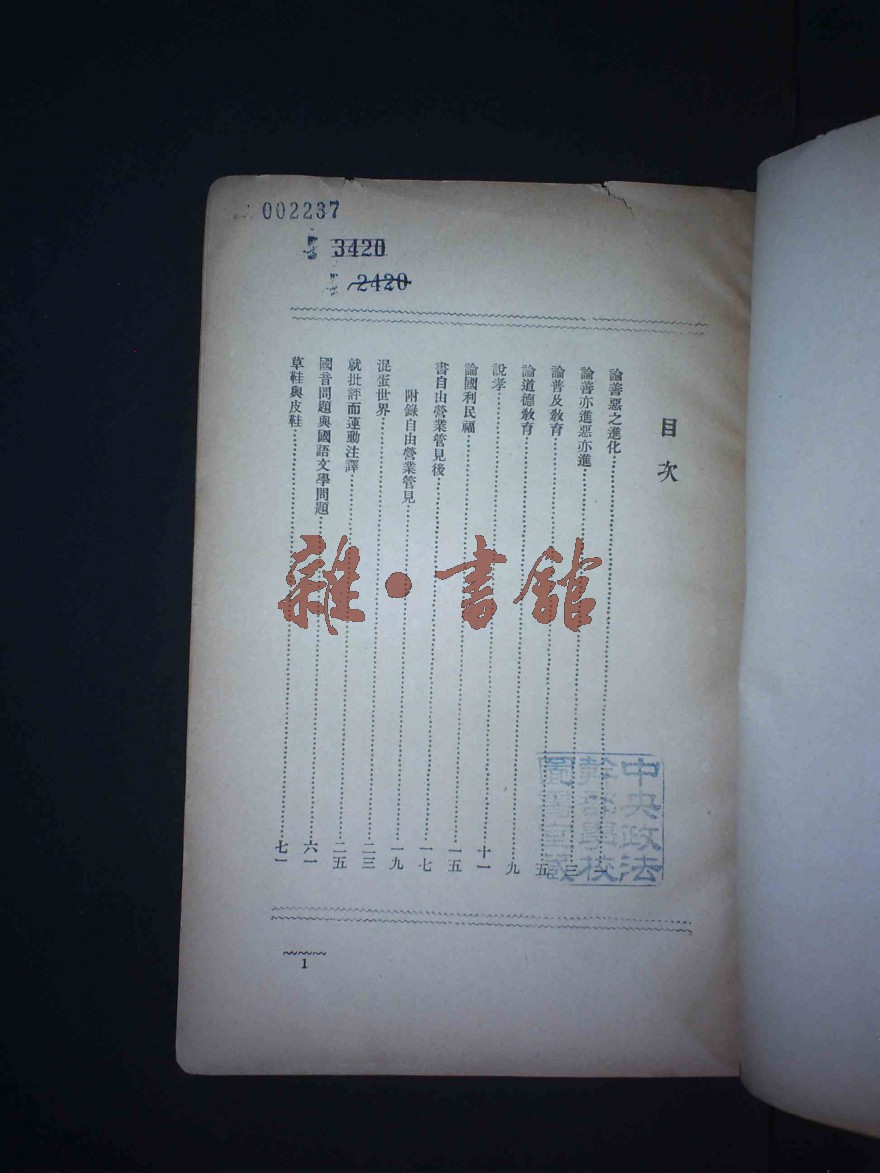 002237
3420
2420
目次
論善惡之進化
論善亦進惡亦進……三
論普及教育……五
論道德教育……九
說孝……十一
論國利民福……一五
書自由營業管見後……一七
附錄自由營業管見……一九
混蛋世界……二三
就批評而運動注譯……二五
國音問題與國語文學問題……六一
草鞋與皮鞋……七一
雜·書館
中央政法
幹部學校
圖書室藏
1